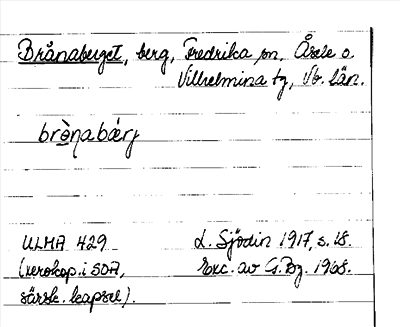 Brånaberget, berg, Fredrika sn, Åsele o.
Vilhelmina tg, Vb. län.
brènabárj
ULMA 429
(xerokop. i SOA,
särsk. kapsel).
L. Sjödin 1917, s. 18.
Exc. av G. Bg. 1968.